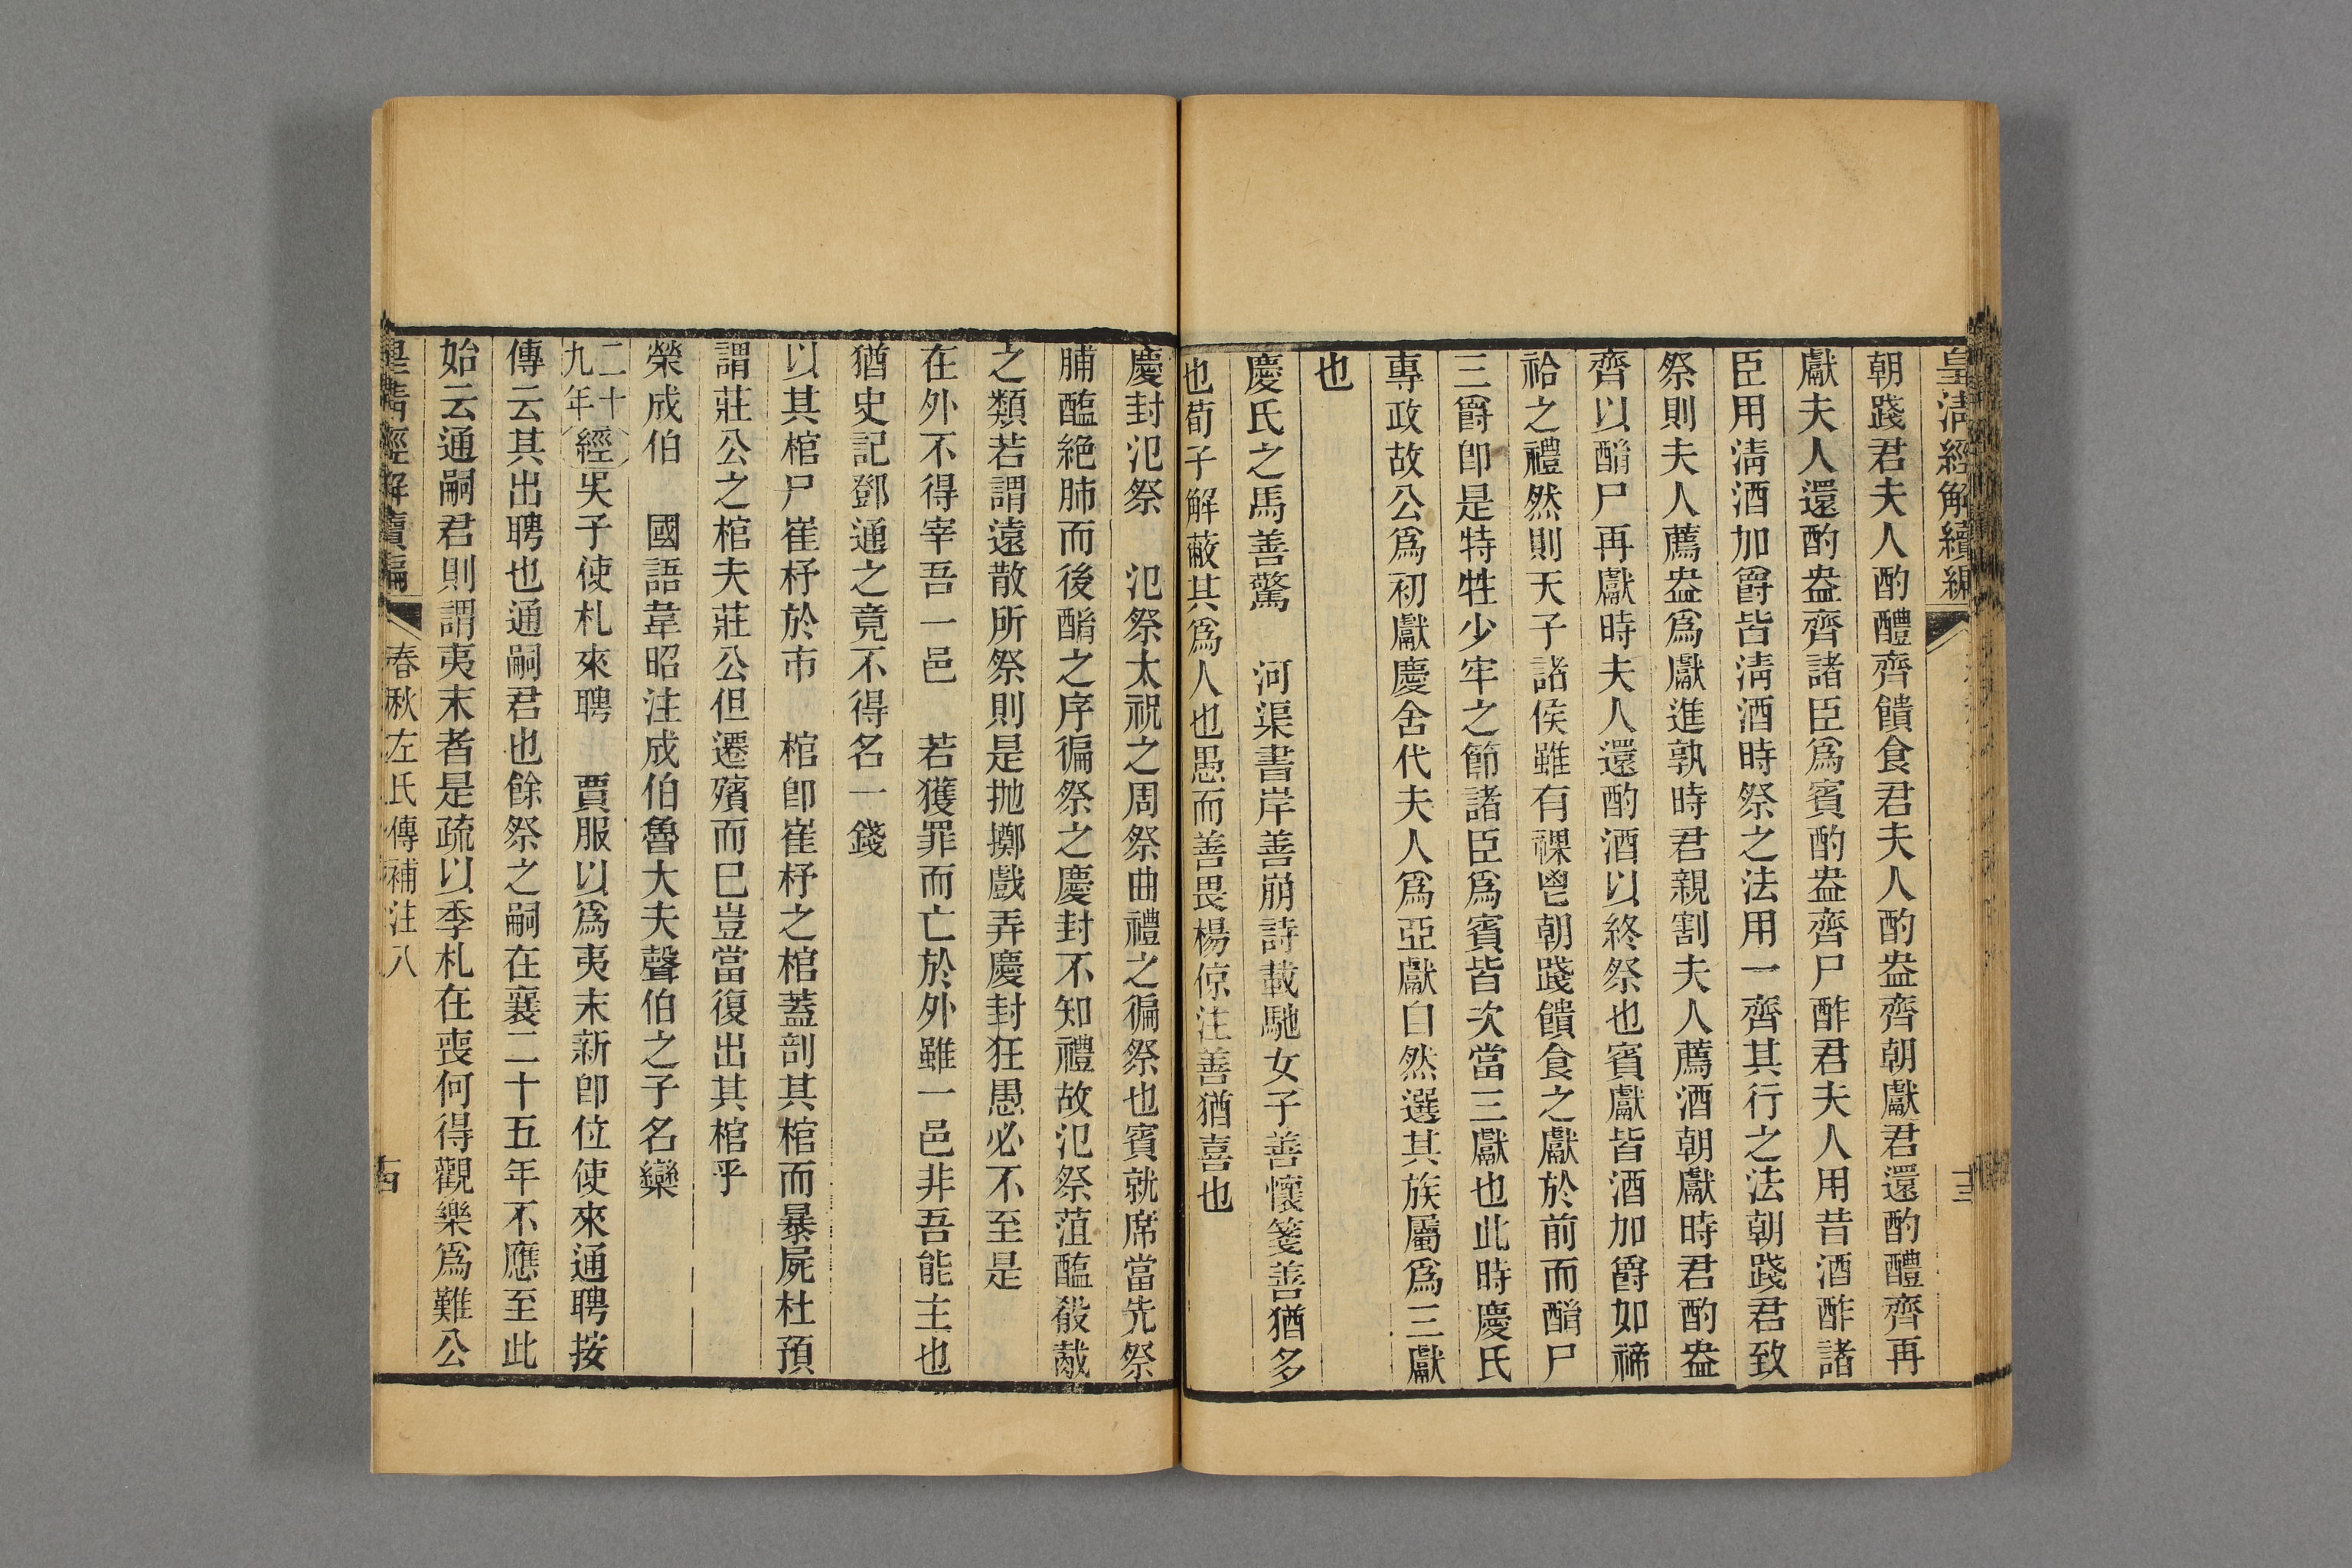 皇清經解續編
十三
朝踐君夫人酌醴齊饋食君夫人酌盎齊朝獻君還酌醴齊再
獻夫人還酌盎齊諸臣爲賓酌盎齊尸酢君夫人用昔酒酢諸
臣用淸酒加爵皆淸酒時祭之法用一齊其行之法朝踐君致
祭則夫人薦盎爲獻進孰時君親割夫人薦酒朝獻時君酌盎
齊以酳尸再獻時夫人還酌酒以終祭也賓獻皆酒加爵如禘
祫之禮然則天子諸侯雖有祼鬯朝踐饋食之獻於前而酳尸
三爵卽是特牲少牢之節諸臣爲賓皆次當三獻也此時慶氏
專政故公爲初獻慶舍代夫人爲亞獻白然選其族屬爲三獻
也
慶氏之馬善驚　河渠書岸善崩詩載馳女子善懷箋善猶多
也荀子解蔽其爲人也愚而善畏楊倞注善猶喜也
慶封氾祭　氾祭太祝之周祭曲禮之徧祭也賓就席當先祭
脯醢絕肺而後酳之序徧祭之慶封不知禮故氾祭菹醢殽胾
之類若謂遠散所祭則是拋擲戲弄慶封狂愚必不至是
在外不得宰吾一邑　若獲罪而亡於外雖一邑非吾能主也
猶史記鄧通之竟不得名一錢
以其棺尸崔杼於市　棺卽崔杼之棺蓋剖其棺而暴屍杜預
謂莊公之棺夫莊公但遷殯而已豈當復出其棺乎
榮成伯　國語韋昭注成伯魯大夫聲伯之子名欒
二十九年經吳子使札來聘　賈服以爲夷末新卽位使來通聘按
傳云其出聘也通嗣君也餘祭之嗣在襄二十五年不應至此
始云通嗣君則謂夷末者是疏以季札在喪何得觀樂爲難公
皇清經解續編
春秋左氏傳補注八
十四